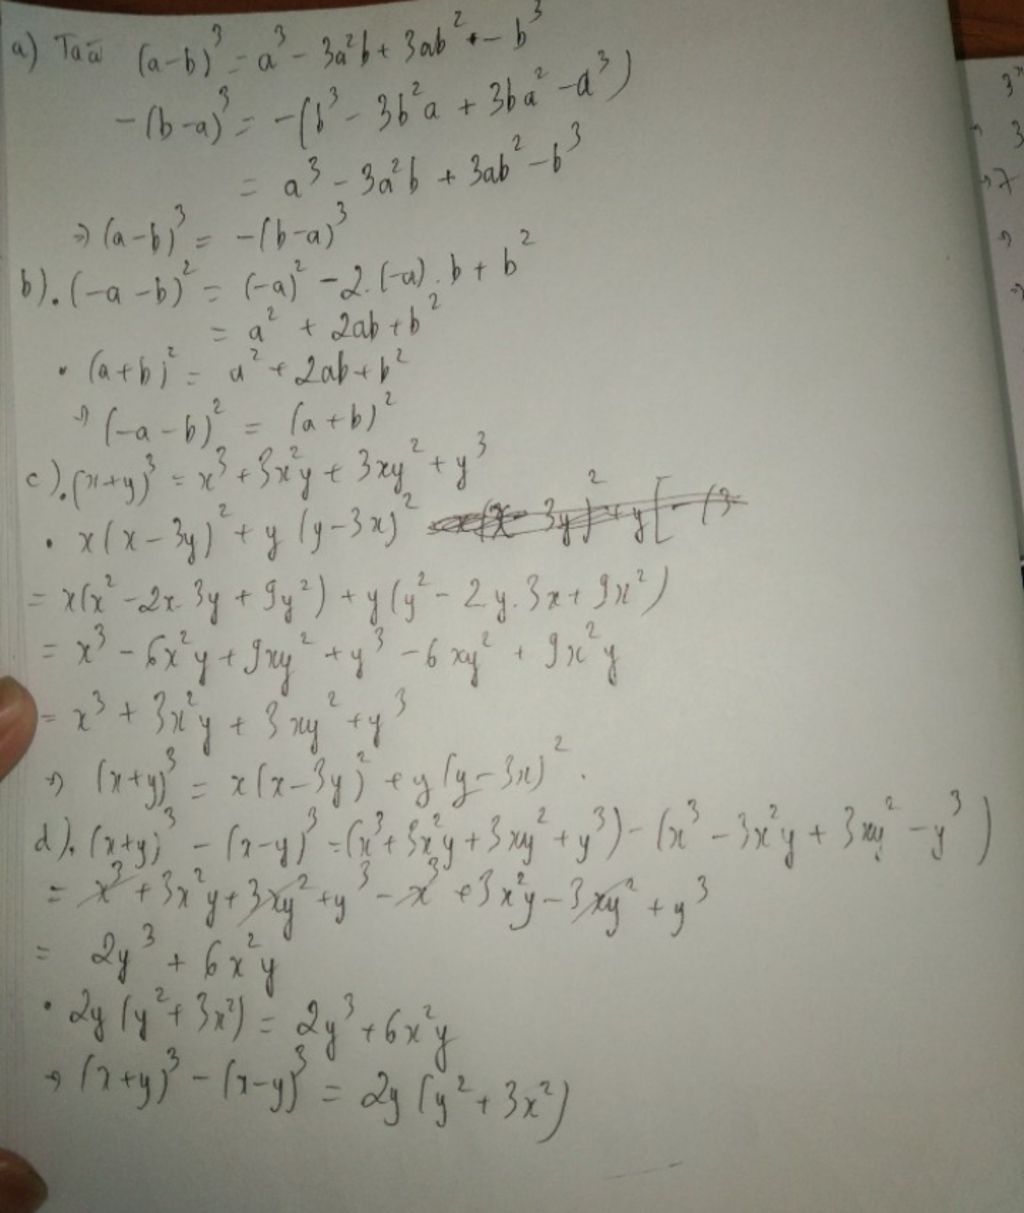 a) Ta có (a-b)³ = a³ - 3a²b + 3ab² - b³
-(b-a)³ = -(b³ - 3b²a + 3ba² - a³)
= a³ - 3a²b + 3ab² - b³
⇒ (a-b)³ = -(b-a)³
b). (-a-b)² = (-a)² - 2.(-a).b + b²
= a² + 2ab + b²
• (a+b)² = a² + 2ab + b²
⇒ (-a-b)² = (a+b)²
c). (x+y)³ = x³ + 3x²y + 3xy² + y³
• x(x-3y)² + y(y-3x)²
= x(x² - 2x.3y + 9y²) + y(y² - 2y.3x + 9x²)
= x³ - 6x²y + 9xy² + y³ - 6xy² + 9x²y
= x³ + 3x²y + 3xy² + y³
⇒ (x+y)³ = x(x-3y)² + y(y-3x)².
d). (x+y)³ - (x-y)³ = (x³ + 3x²y + 3xy² + y³) - (x³ - 3x²y + 3xy² - y³)
= x³ + 3x²y + 3xy² + y³ - x³ + 3x²y - 3xy² + y³
= 2y³ + 6x²y
• 2y(y² + 3x²) = 2y³ + 6x²y
⇒ (x+y)³ - (x-y)³ = 2y(y² + 3x²)